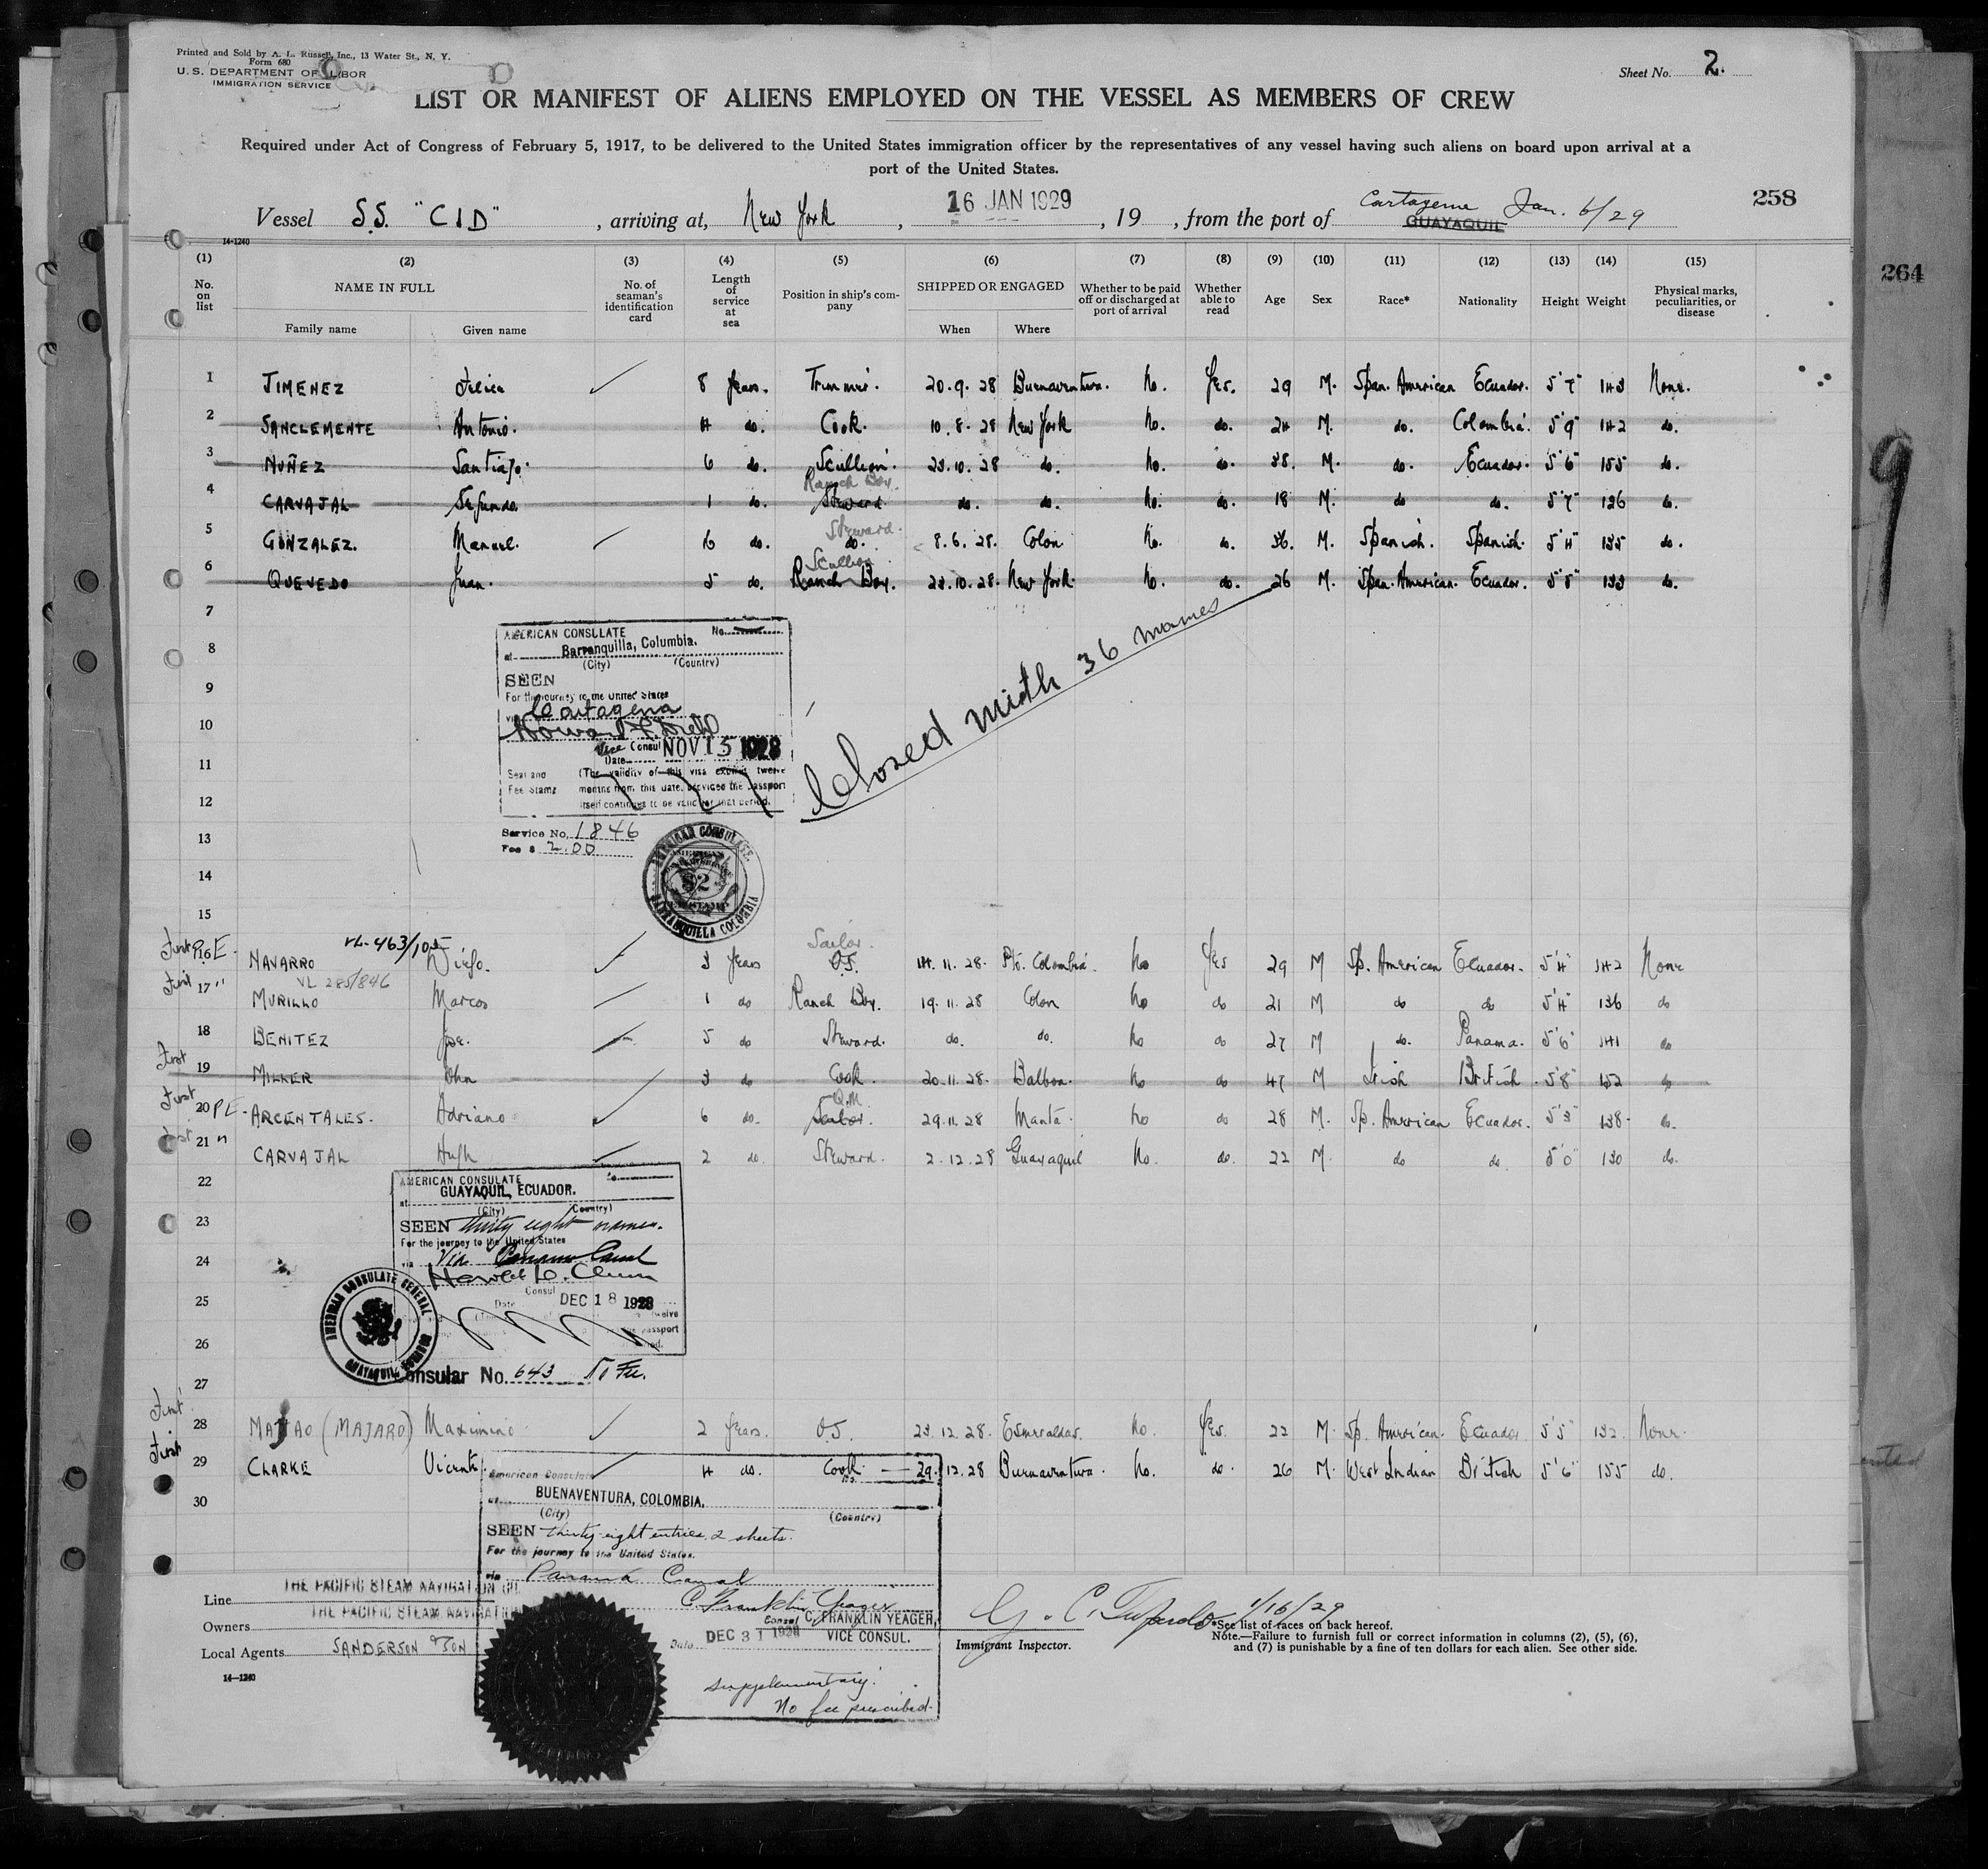 Printed and Sold by A. L. Russell, Inc., 13 Water St., N. Y.
Form 680
U. S. DEPARTMENT OF LABOR
IMMIGRATION SERVICE
Sheet No. 2.
LIST OR MANIFEST OF ALIENS EMPLOYED ON THE VESSEL AS MEMBERS OF CREW
Required under Act of Congress of February 5, 1917, to be delivered to the United States immigration officer by the representatives of any vessel having such aliens on board upon arrival at a
port of the United States.
258
Vessel S.S. "CID", arriving at, New York, 16 JAN 1929, 19 , from the port of Cartagena GUAYAQUIL Jan. 6/29
14-1240
264
(1) (2) (3) (4) (5) (6) (7) (8) (9) (10) (11) (12) (13) (14) (15)
No. on list NAME IN FULL No. of seaman's identification card Length of service at sea Position in ship's company SHIPPED OR ENGAGED Whether to be paid off or discharged at port of arrival Whether able to read Age Sex Race* Nationality Height Weight Physical marks, peculiarities, or disease
Family name Given name When Where
1 JIMENEZ 8 Years. Trimmer. 20.9.28 Buenaventura. No. Yes. 29 M. Span. American Ecuador. 5'7" 143 None.
2 SANCLEMENTE Antonio. 4 do. Cook. 10.8.28 New York No. do. 24 M. do. Colombia. 5'9" 142 do.
3 NUÑEZ Santiago. 6 do. Scullion. 23.10.28 do. No. do. 38. M. do. Ecuador. 5'6" 155 do.
Ranch Boy.
4 CARVAJAL Segundo. 1 do. Steward do. do. No. do. 18 M. do do. 5'7" 126 do.
Steward.
5 GONZALEZ. Manuel. 6 do. do. 8.6.28. Colon No. do. 36. M. Spanish. Spanish. 5'4" 135 do.
Scullion
6 QUEVEDO Juan. 5 do. Ranch Boy. 23.10.28. New York. No. do. 26 M. Span. American. Ecuador. 5'5" 133 do.
7
8
9
10
11
12
13
14
15
AMERICAN CONSULATE No.
at Barranquilla, Columbia.
(City) (Country)
SEEN
For the journey to the United States
via Cartagena
Vice Consul
Date NOV 15 1928
Seal and Fee Stamp
(The validity of this visa expires twelve
months from this date, provided the passport
itself continues to be valid for that period.
Service No. 1846
Fee $ 2.00
AMERICAN CONSULATE
$2
BARRANQUILLA COLOMBIA
Closed with 36 names
First P.E. VL-463/105
Sailor.
16 NAVARRO Diego. 3 Years O.S. 14.11.28. Pto. Colombia. No Yes 29 M Sp. American Ecuador. 5'4" 142 None
First " VL 285/846
17 MURILLO Marcos 1 do Ranch Boy. 19.11.28 Colon No do 21 M do do 5'4" 136 do
18 BENITEZ Jose. 5 do Steward. do. do. No do 27 M do. Panama. 5'6" 141 do
First
19 MILLER John 3 do Cook. 20.11.28. Balboa. No do 47 M Irish British. 5'8" 152 do
First Q.M.
20 PE - ARCENTALES. Adriano 6 do. Sailor. 29.11.28 Manta. No do 28 M. Sp. American Ecuador. 5'3" 138 do.
First "
21 CARVAJAL Hugh 2 do. Steward. 2.12.28 Guayaquil No. do. 22 M. do do. 5'0" 130 do.
22
23
24
25
26
27
AMERICAN CONSULATE
at GUAYAQUIL, ECUADOR.
(City) (Country)
SEEN thirty eight names.
For the journey to the United States
via Via Panama Canal
Consul
Date DEC 18 1928
AMERICAN CONSULATE GENERAL
GUAYAQUIL, ECUADOR
Consular No. 643 No Fee.
First
28 MAJAO (MAJARO) Maximino 2 Years. O.S. 23.12.28. Esmeraldas. No. Yes. 22 M. Sp. American. Ecuador 5'5" 132. None.
First
29 CLARKE Vicente 4 do. Cook. 29.12.28 Buenaventura. No. do. 26 M. West Indian British 5'6" 155 do.
30
American Consulate No.
at BUENAVENTURA, COLOMBIA.
(City) (Country)
SEEN thirty-eight entries, 2 sheets.
For the journey to the United States.
via Panama Canal
C. Franklin Yeager
Consul C. FRANKLIN YEAGER,
Date DEC 31 1928 VICE CONSUL.
supplementary.
No fee prescribed.
Line THE PACIFIC STEAM NAVIGATION CO.
Owners THE PACIFIC STEAM NAVIGATION
Local Agents SANDERSON & SON
14-1240
1/16/29
Immigrant Inspector.
*See list of races on back hereof.
Note.—Failure to furnish full or correct information in columns (2), (5), (6),
and (7) is punishable by a fine of ten dollars for each alien. See other side.